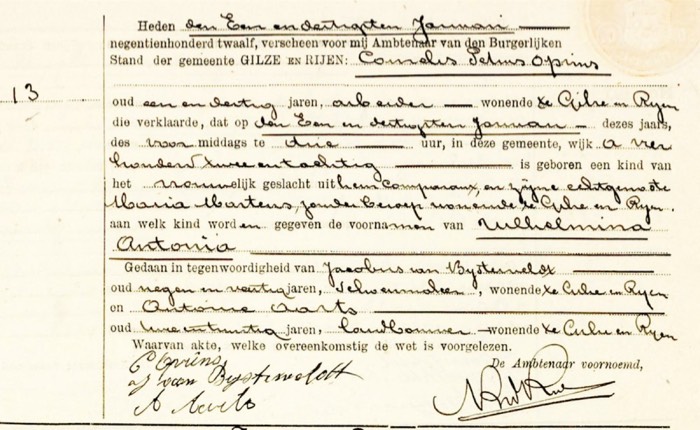 Heden den Een en dertigsten Januari
negentienhonderd twaalf, verscheen voor mij Ambtenaar van den Burgerlijken
Stand der gemeente GILZE EN RIJEN: Cornelis Petrus Oprins
13
oud een en dertig jaren, arbeider wonende te Gilze en Ryen
die verklaarde, dat op den Een en dertigsten Januari dezes jaars,
des voor middags te drie uur, in deze gemeente, wijk A vier
honderd twee en tachtig is geboren een kind van
het vrouwelijk geslacht uit hem comparant, en zijne echtgenoote
Maria Martens, zonder beroep wonende te Gilze en Ryen.
aan welk kind worden gegeven de voornamen van Wilhelmina
Antonia
Gedaan in tegenwoordigheid van Jacobus van Bysterveldt
oud negen en veertig jaren, schoenmaker, wonende te Gilze en Ryen
en Antonie Aarts
oud jaren, landbouwer wonende te Gilze en Ryen
Waarvan akte, welke overeenkomstig de wet is voorgelezen.
C Oprins De Ambtenaar voornoemd,
van Bysterveldt
A Aarts